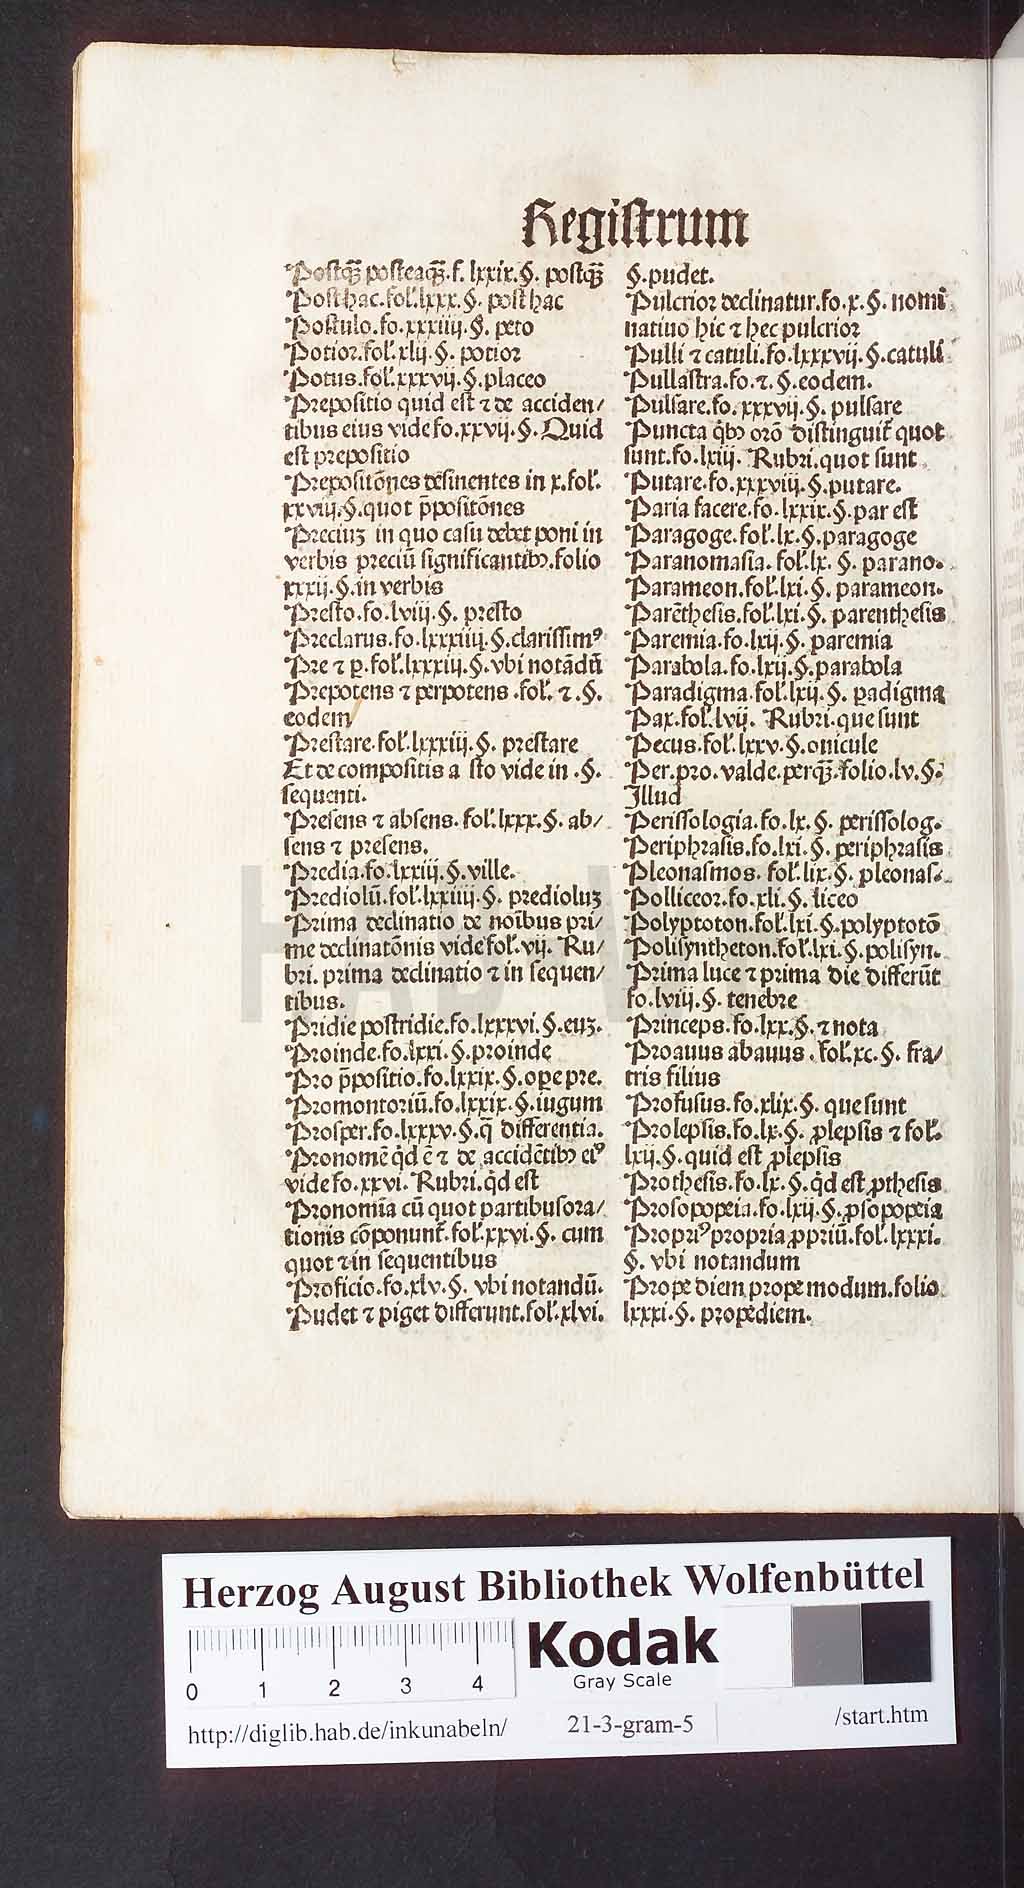 Registrum
Postqꝫ posteaqꝫ.f. lxxix.§. postqꝫ
Posthac.fol̕.lxxx.§. post hac
Postulo.fo.xxxiiij.§. peto
Potior.fol̕.xlij.§. potior
Potus.fol̕.xxxvij.§.placeo
Prepositio quid est ⁊ de acciden/
tibus eius vide fo.xxvij.§. Quid
est prepositio
Prepositiōnes desinentes in x.fol̕.
xxviij.§.quot p̄positōnes
Preciuꝫ in quo casu debet poni in
verbis preciū significantibꝰ.folio
xxxij.§.in verbis
Presto.fo.lviij.§. presto
Preclarus.fo.lxxxiiij.§.clarissimꝰ
Pre ⁊ ꝑ.fol̕.lxxxiij.§.vbi notādū
Prepotens ⁊ perpotens .fol̕. ⁊ .§.
eodem
Prestare.fol̕.lxxxiij.§. prestare
Et de compositis a sto vide in .§.
sequenti.
Presens ⁊ absens. fol̕.lxxx.§. ab/
sens ⁊ presens.
Predia.fo.lxxiij.§.ville.
Prediolū.fol̕.lxxiiij.§. predioluꝫ
Prima declinatio de noībus pri/
me declinatōnis vide fol̕.vij. Ru/
bri. prima declinatio ⁊ in sequen/
tibus.
Pridie postridie.fo.lxxxvi.§.euꝫ.
Proinde.fo.lxxi.§.proinde
Pro p̄positio.fo.lxxix.§.ope pre.
Promontoriū.fo.lxxix.§.iugum
Prosper.fo.lxxxv.§.q̄ differentia.
Pronomē qd̕ ē ⁊ de accidētibꝰ eiꝰ
vide fo.xxvi. Rubri.qd̕ est
Pronomīa cū quot partibus ora/
tionis cōponunt̕.fol̕.xxvi.§. cum
quot ⁊ in sequentibus
Proficio.fo.xlv.§. vbi notandū.
Pudet ⁊ piget differunt.fol̕.xlvi.
§.pudet.
Pulcrior declinatur.fo.x.§. nomi
natiuo hic ⁊ hec pulcrior
Pulli ⁊ catuli.fo.lxxxvij.§.catuli
Pullastra.fo.⁊.§.eodem.
Pulsare.fo.xxxvij.§. pulsare
Puncta qͥbꝰ orō distinguit̕ quot
sunt.fo.lxiij. Rubri.quot sunt
Putare.fo.xxxviij.§.putare.
Paria facere.fo.lxxix.§.par est
Paragoge.fol̕.lx.§.paragoge
Paranomasia.fol̕.lx.§. parano.
Parameon.fol̕.lxi.§. parameon.
Parēthesis.fol̕.lxi.§. parenthesis
Paremia.fo.lxij.§. paremia
Parabola.fo.lxij.§.parabola
Paradigma.fol̕.lxij.§. ꝑadigma
Pax.fol̕.lvij. Rubri.que sunt
Pecus.fol̕.lxxv.§.onicule
Per.pro. valde.perqꝫ.folio.lv.§.
Illud
Perissologia.fo.lx.§. perissolog.
Periphrasis.fo.lxi.§. periphrasis
Pleonasmos. fol̕.lix.§. pleonas.
Polliceor.fo.xli.§. liceo
Polyptoton.fol̕.lxi.§.polyptotō
Polisyntheton.fol̕.lxi.§.polisyn.
Prima luce ⁊ prima die differūt
fo.lviij.§. tenebre
Princeps.fo.lxx.§.⁊ nota
Proauus abauus .fol̕.xc.§. fra/
tris filius
Profusus.fo.xlix.§. que sunt
Prolepsis.fo.lx.§. ꝓlepsis ⁊ fol̕.
lxij.§.quid est ꝓlepsis
Prothesis.fo.lx.§.qd̕ est ꝓthesis
Prosopopeia.fo.lxij.§.ꝓsopopeia
Propriꝰ propria ꝓpriū.fol̕.lxxxi.
§. vbi notandum
Prope diem prope modum.folio
lxxxi.§. propediem.
Herzog August Bibliothek Wolfenbüttel
0 1 2 3 4
Kodak
Gray Scale
http://diglib.hab.de/inkunabeln/
21-3-gram-5
/start.htm